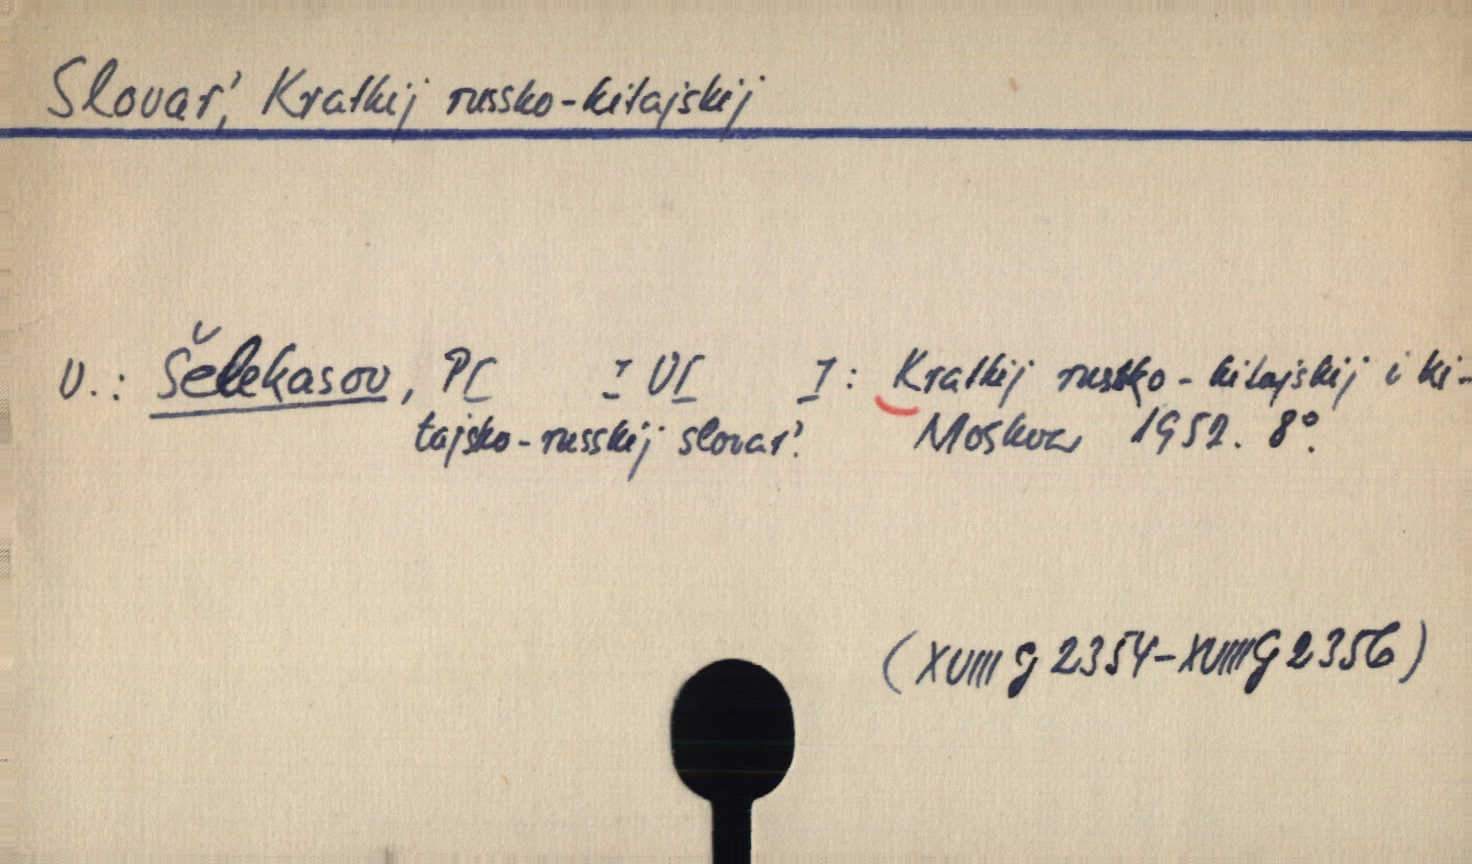 Slovar', Kratkij russko-kitajskij
V.: Šelekasov, P[ ] V[ ]: Kratkij russko-kitajskij i ki-
tajsko-russkij slovar'. Moskva 1952. 8°.
(XVIII G 2354-XVIII G 2356)